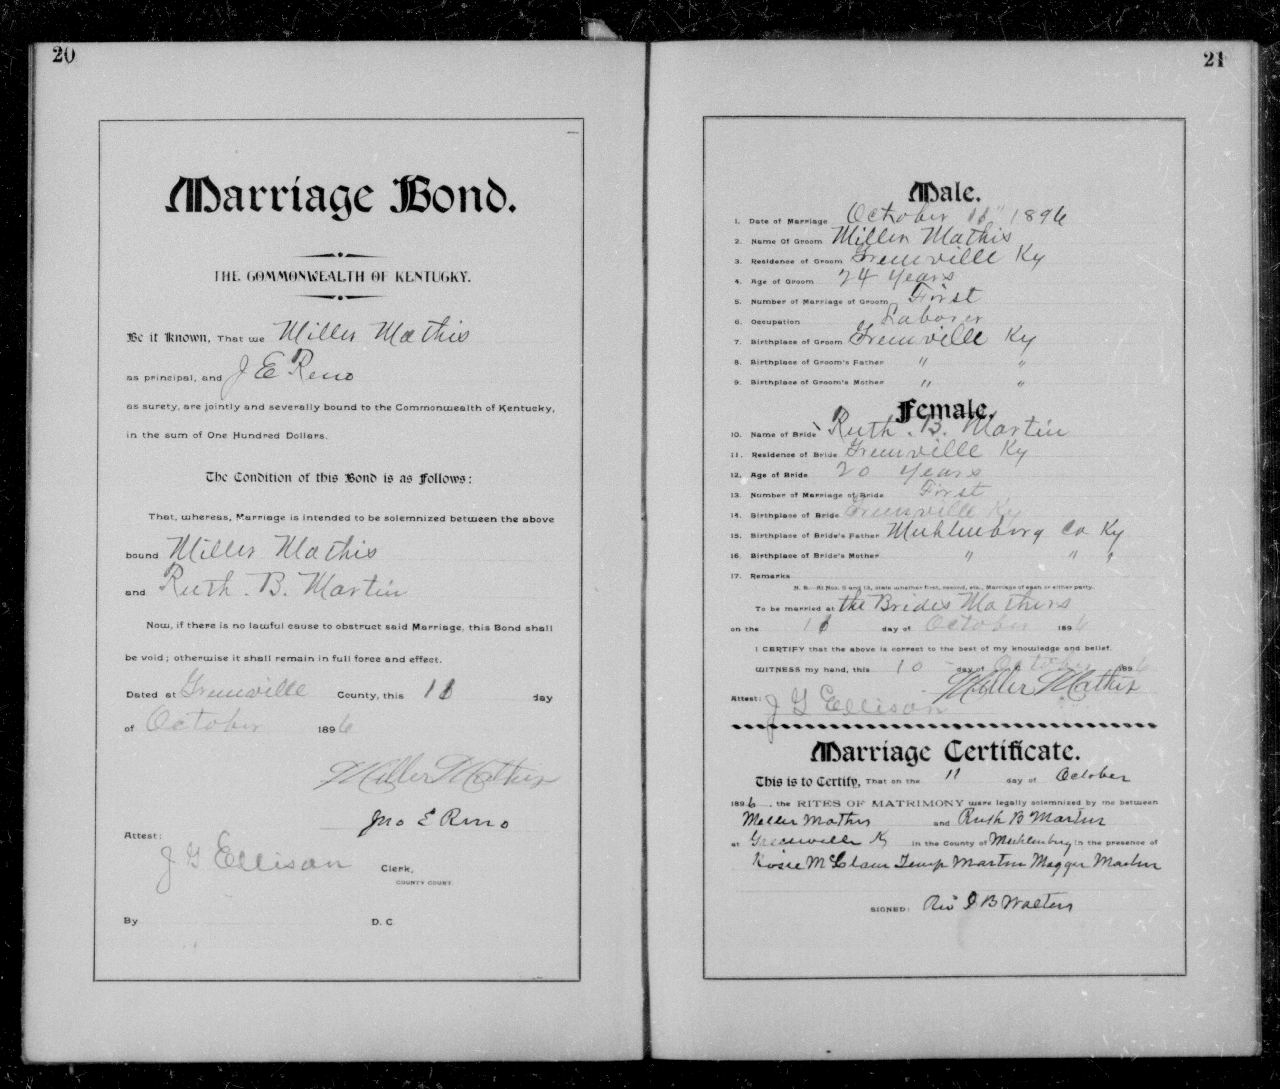 20
Marriage Bond.
THE COMMONWEALTH OF KENTUCKY.
Be it Known, That we Miller Mathis
as principal, and J E Reno
as surety, are jointly and severally bound to the Commonwealth of Kentucky,
in the sum of One Hundred Dollars.
The Condition of this Bond is as Follows:
That, whereas, Marriage is intended to be solemnized between the above
bound Miller Mathis
and Ruth. B. Martin
Now, if there is no lawful cause to obstruct said Marriage, this Bond shall
be void; otherwise it shall remain in full force and effect.
Dated at Greenville County, this day
of October 1896
Miller Mathis
Jno E Reno
Attest:
J G Ellison Clerk,
COUNTY COURT
By D. C.
21
Male.
1. Date of Marriage October 11" 1896
2. Name Of Groom Miller Mathis
3. Residence of Groom Greenville Ky
4. Age of Groom 24 years
5. Number of Marriage of Groom First
6. Occupation Laborer
7. Birthplace of Groom Greenville Ky
8. Birthplace of Groom's Father " "
9. Birthplace of Groom's Mother " "
Female.
10. Name of Bride Ruth. B. Martin
11. Residence of Bride Greenville Ky
12. Age of Bride 20 years
13. Number of Marriage of Bride First
14. Birthplace of Bride Greenville Ky
15. Birthplace of Bride's Father Muhlenborg Co Ky
16. Birthplace of Bride's Mother " " "
17. Remarks
N. B.—At Nos. 5 and 13, state whether first, second, etc., Marriage of each or either party.
To be married at the Brides Mothers
on the 11 day of October 1896
I CERTIFY that the above is correct to the best of my knowledge and belief.
WITNESS my hand, this 10 day of October 1896
Miller Mathis
Attest: J G Ellison
Marriage Certificate.
This is to Certify, That on the 11 day of October
1896, the RITES OF MATRIMONY were legally solemnized by me between
Miller Mathis and Ruth B Martin
at Greenville Ky in the County of Muhlenburg in the presence of
Rosie McClain Temp Martin Maggie Martin
SIGNED: Rev J B Walters